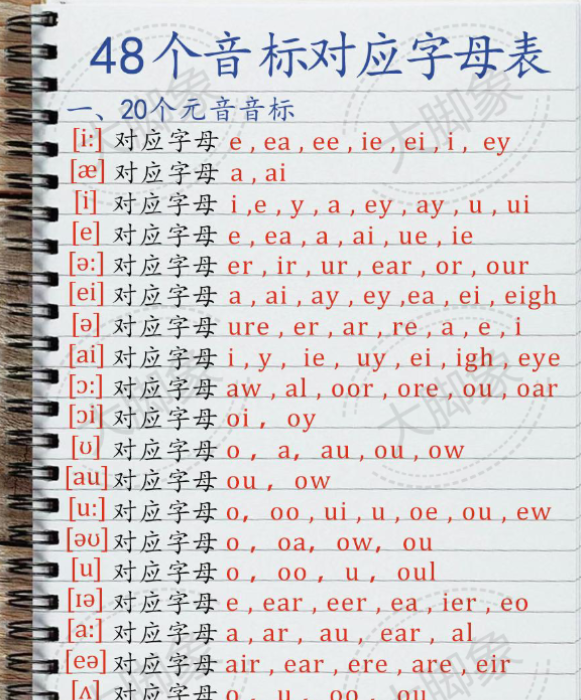 48个音标对应字母表
一、20个元音音标
[i:] 对应字母 e , ea , ee , ie , ei , i , ey
[æ] 对应字母 a , ai
[i] 对应字母 i ,e , y , a , ey , ay , u , ui
[e] 对应字母 e , ea , a , ai , ue , ie
[ə:] 对应字母 er , ir , ur , ear , or , our
[ei] 对应字母 a , ai , ay , ey ,ea , ei , eigh
[ə] 对应字母 ure , er , ar , re , a , e , i
[ai] 对应字母 i , y , ie , uy , ei , igh , eye
[ɔ:] 对应字母 aw , al , oor , ore , ou , oar
[ɔi] 对应字母 oi , oy
[ʊ] 对应字母 o , a, au , ou , ow
[au] 对应字母 ou , ow
[u:] 对应字母 o, oo , ui , u , oe , ou , ew
[əʊ] 对应字母 o , oa, ow, ou
[u] 对应字母 o , oo , u , oul
[ɪə] 对应字母 e , ear , eer , ea , ier , eo
[a:] 对应字母 a , ar , au , ear , al
[eə] 对应字母 air , ear , ere , are , eir
[ʌ] 对应字母 o , u , oo , ou
大脚象
大脚象
大脚象
大脚象
大脚象
大脚象